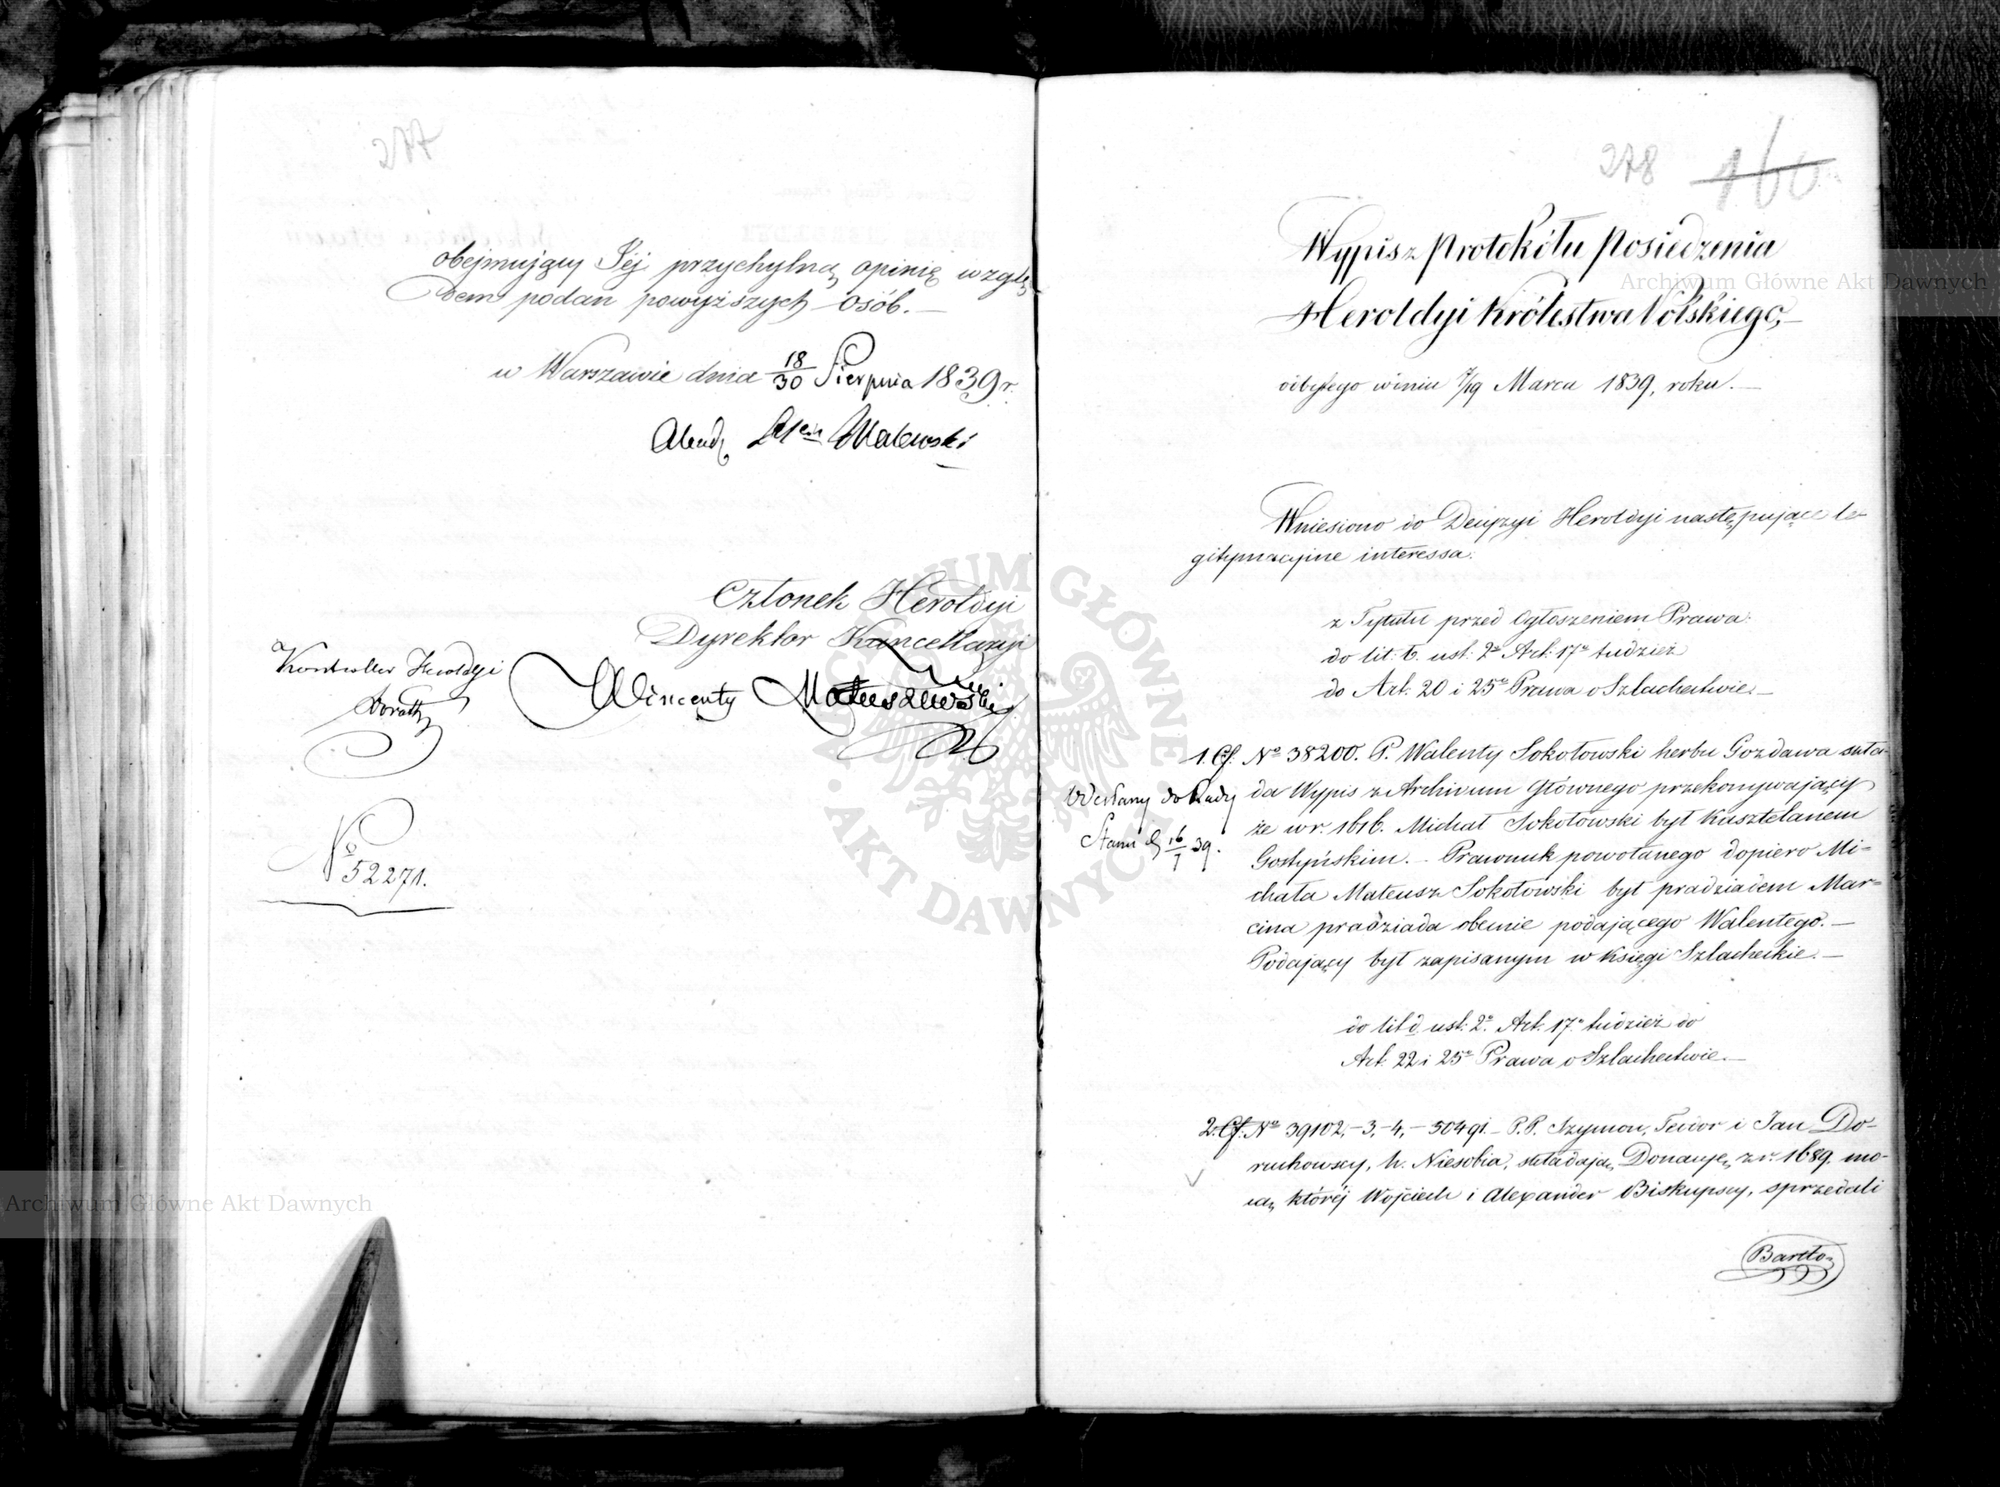 277
obejmujący Jéj przychylną opinię wzglę-
dem podań powyższych osób.—
w Warszawie dnia 18/30 Sierpnia 1839 r.
Malewski
Członek Heroldyi
Dyrektor Kancellaryi
Kontroller Heroldyi
Wincenty Matuszewski
No 52271.
278 160
Wypis z Protokółu Posiedzenia
Heroldyi Królestwa Polskiego,—
odbytego w dniu 7/19 Marca 1839, roku.—
Wniesiono do Decyzyi Heroldyi następujące le-
gitymacyjne interessa.
z Tytułu przed Ogłoszeniem Prawa:
do lit: b. ust: 2o Art: 17o tudzież
do Art. 20 i 25o Prawa o Szlachectwie.—
1. Cf. No 38200. P. Walenty Sokołowski herbu Gozdawa skła-
da Wypis z Archivum Głównego przekonywający
że w r. 1616. Michał Sokołowski był Kasztelanem
Gostyńskim.— Prawnuk powołanego dopiero Mi-
chała Mateusz Sokołowski był pradziadem Mar-
cina pradziada obecnie podającego Walentego.—
Podający był zapisanym w Księgi Szlacheckie.—
Odesłany do Rady
Stanu d. 16/7 39.
do lit d ust: 2o Art. 17o tudzież do
Art. 22 i 25o Prawa o Szlachectwie.—
2. Cf. No 39102,-3,-4,- 50491. P.P. Szymon, Teodor i Jan Do-
ruchowscy, h. Niesobia, składają Donacyę z r. 1689. mo-
cą któréj Wojciech i Alexander Biskupscy, sprzedali
√
Archiwum Główne Akt Dawnych
Archiwum Główne Akt Dawnych
ARCHIWUM GŁÓWNE AKT DAWNYCH